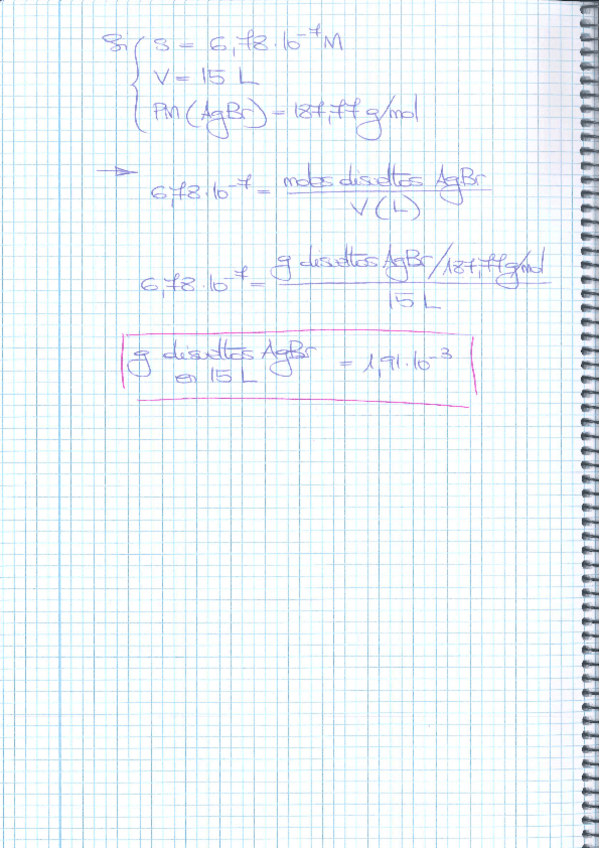 Si { S = 6,78·10⁻⁷ M
V = 15 L
PM (AgBr) = 187,77 g/mol
→ 6,78·10⁻⁷ = moles disueltos AgBr / V (L)
6,78·10⁻⁷ = g disueltos AgBr/187,77 g/mol / 15 L
g disueltos AgBr en 15 L = 1,91·10⁻³